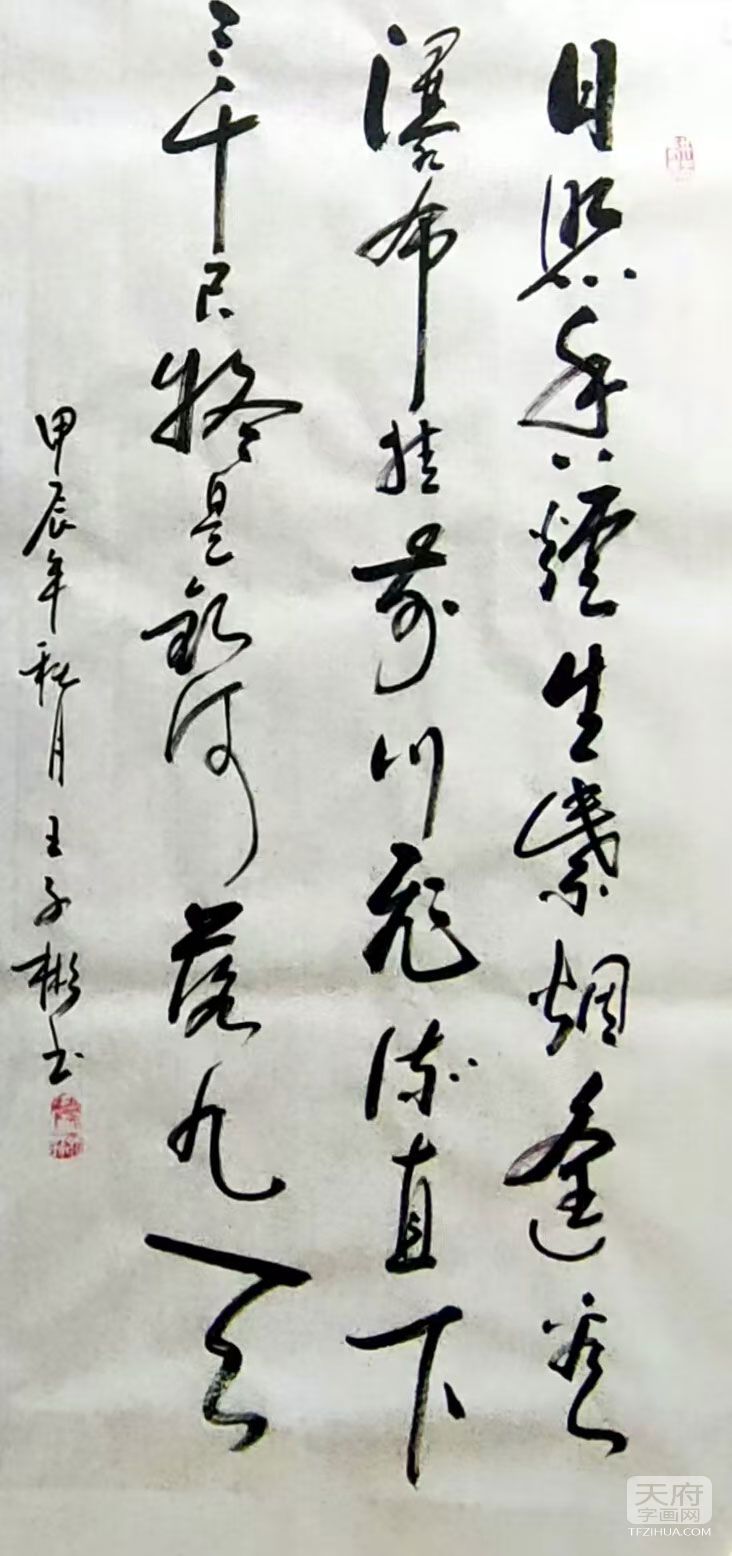 日照香爐生紫烟遥看
瀑布挂前川飛流直下
三千尺疑是銀河落九天
甲辰年秋月王子彬书
天府
字画网
TFZIHUA.COM